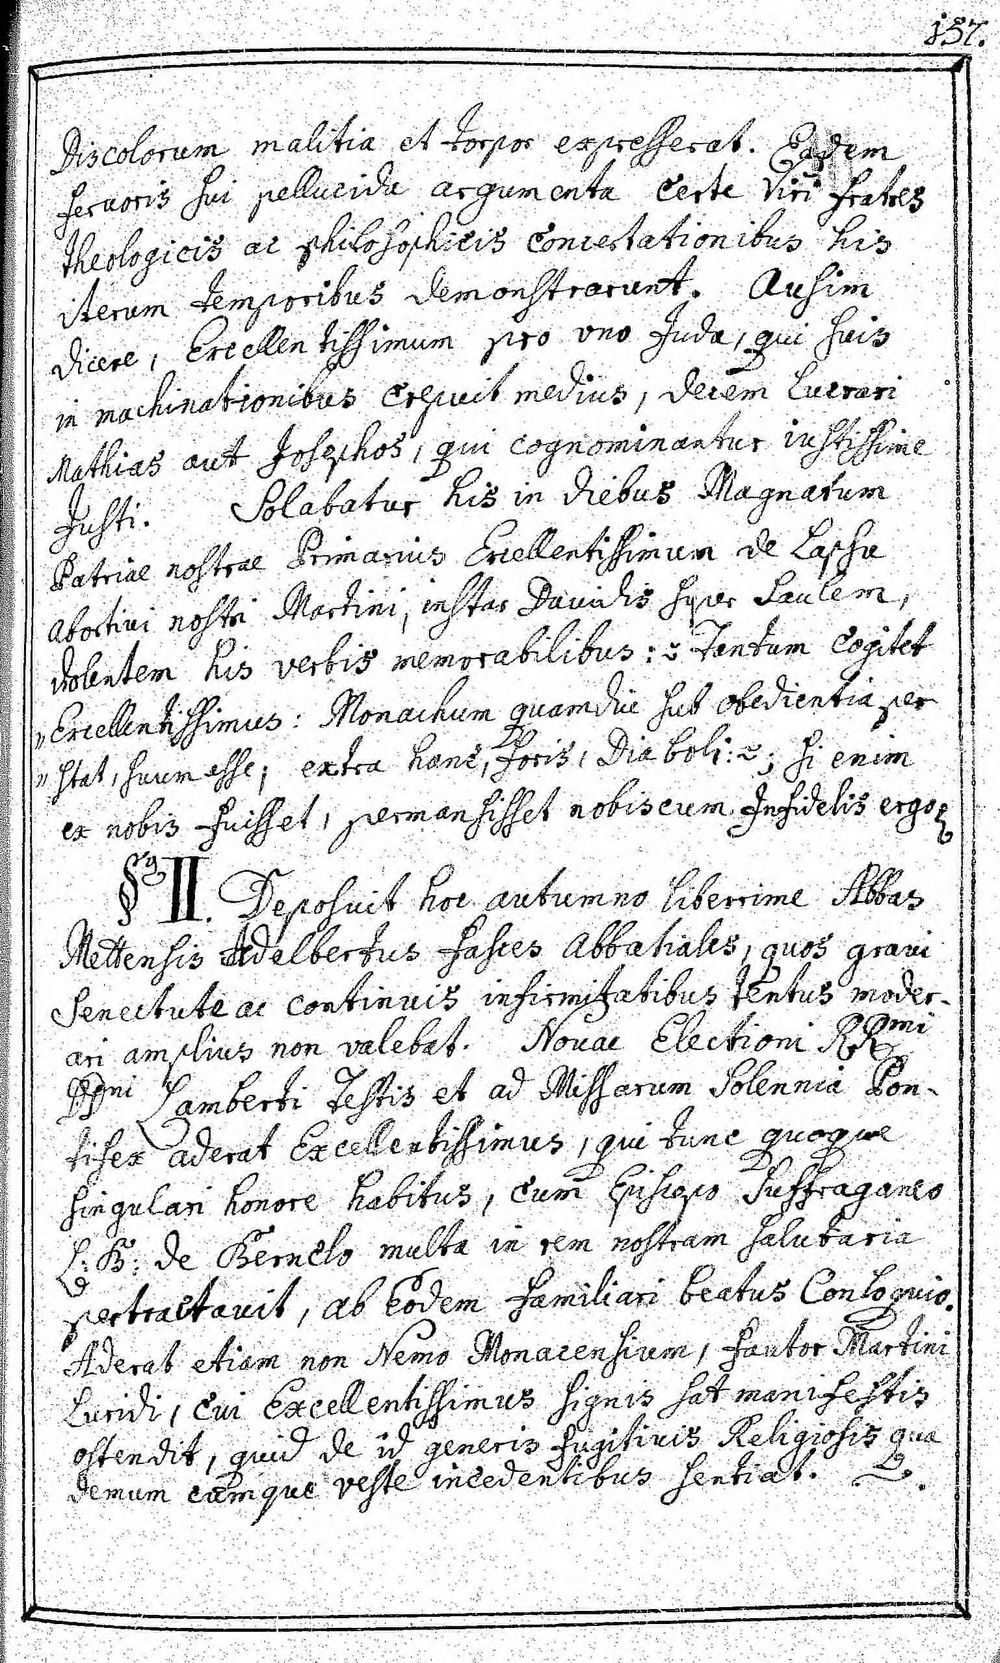 157.
Discolorum malitia et torpor expresserat. Eadem
feruoris sui pellucida argumenta certe Viri fratres
theologicis ac philosophicis concertationibus his
iterum temporibus demonstrarunt. Ausim
dicere, Excellentissimum pro uno Juda, qui suis
in machinationibus crepuit medius, decem lucrari
Mathias aut Josephos, qui cognominantur iustissime
Justi. Solabatur his in diebus Magnatum
Patriae nostrae Primarius Excellentissimum de Lapsu
abortiui nostri Martini, instar Davidis super Saulem,
dolentem his verbis memorabilibus: Tantum cogitet
"Excellentissimus: Monachum quamdiu sub obedientia per
"stat, suum esse; extra hanc, foris, Diaboli: ; si enim
ex nobis fuisset, permansisset nobiscum Infidelis ergo
§ II. Deposuit hoc autumno liberrime Abbas
Mettensis Adelbertus fasces Abbatiales, quos graui
Senectute ac continuis infirmitatibus tentus moder-
ari amplius non valebat. Nouae Electioni RRmi
DDni Lamberti Testis et ad Missarum Solennia Pon-
tifex aderat Excellentissimus, qui tunc quoque
singulari honore habitus, cum Episcopo Suffraganeo
L: B: de Wernclo multa in rem nostram salutaria
pertractauit, ab Eodem familiari beatus Conloquio.
Aderat etiam non Nemo Monacensium, fautor Martini
Lucidi, cui Excellentissimus signis sat manifestis
ostendit, quid de id generis fugitiuis Religiosis qua
demum cumque veste incedentibus sentiat.